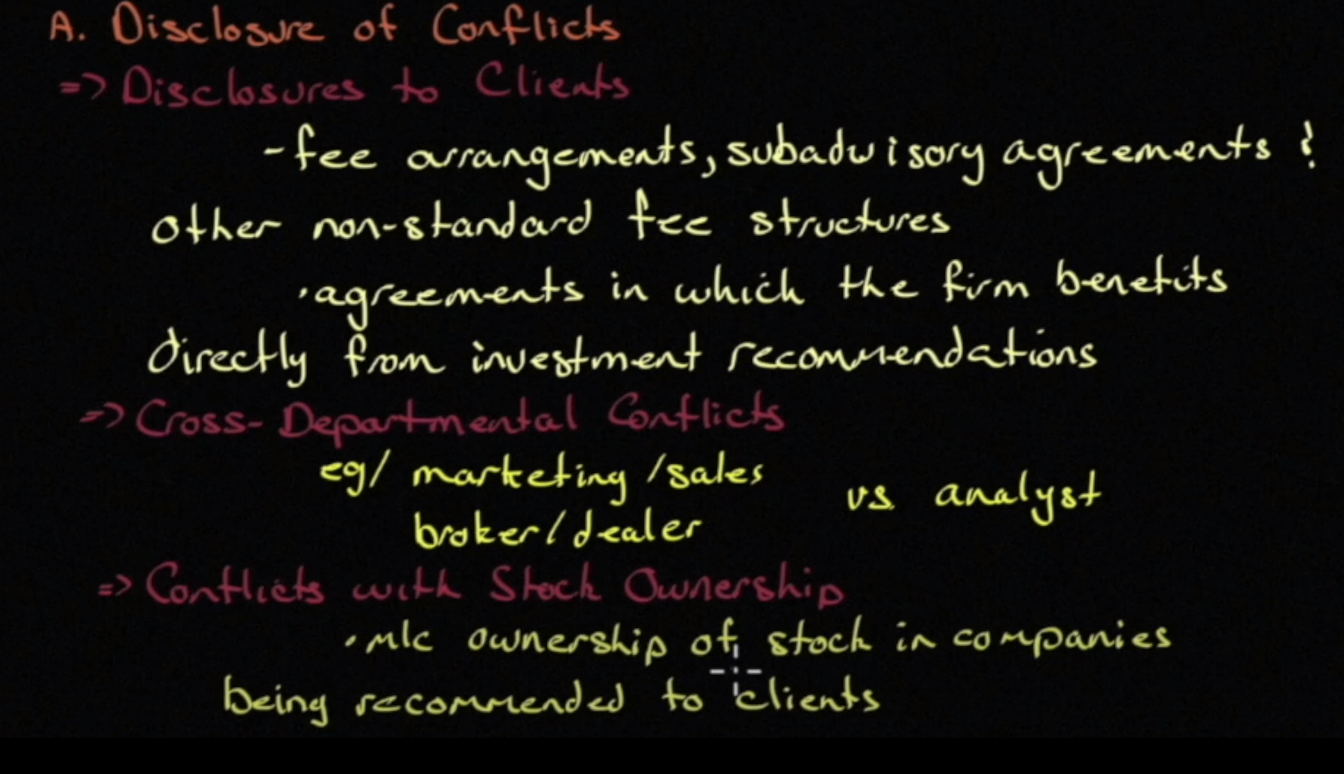 A. Disclosure of Conflicts
=> Disclosures to Clients
- fee arrangements, subadvisory agreements &
other non-standard fee structures
· agreements in which the firm benefits
directly from investment recommendations
=> Cross-Departmental Conflicts
eg/ marketing /sales
vs analyst
broker/dealer
=> Conflicts with Stock Ownership
· m/c ownership of stock in companies
being recommended to clients